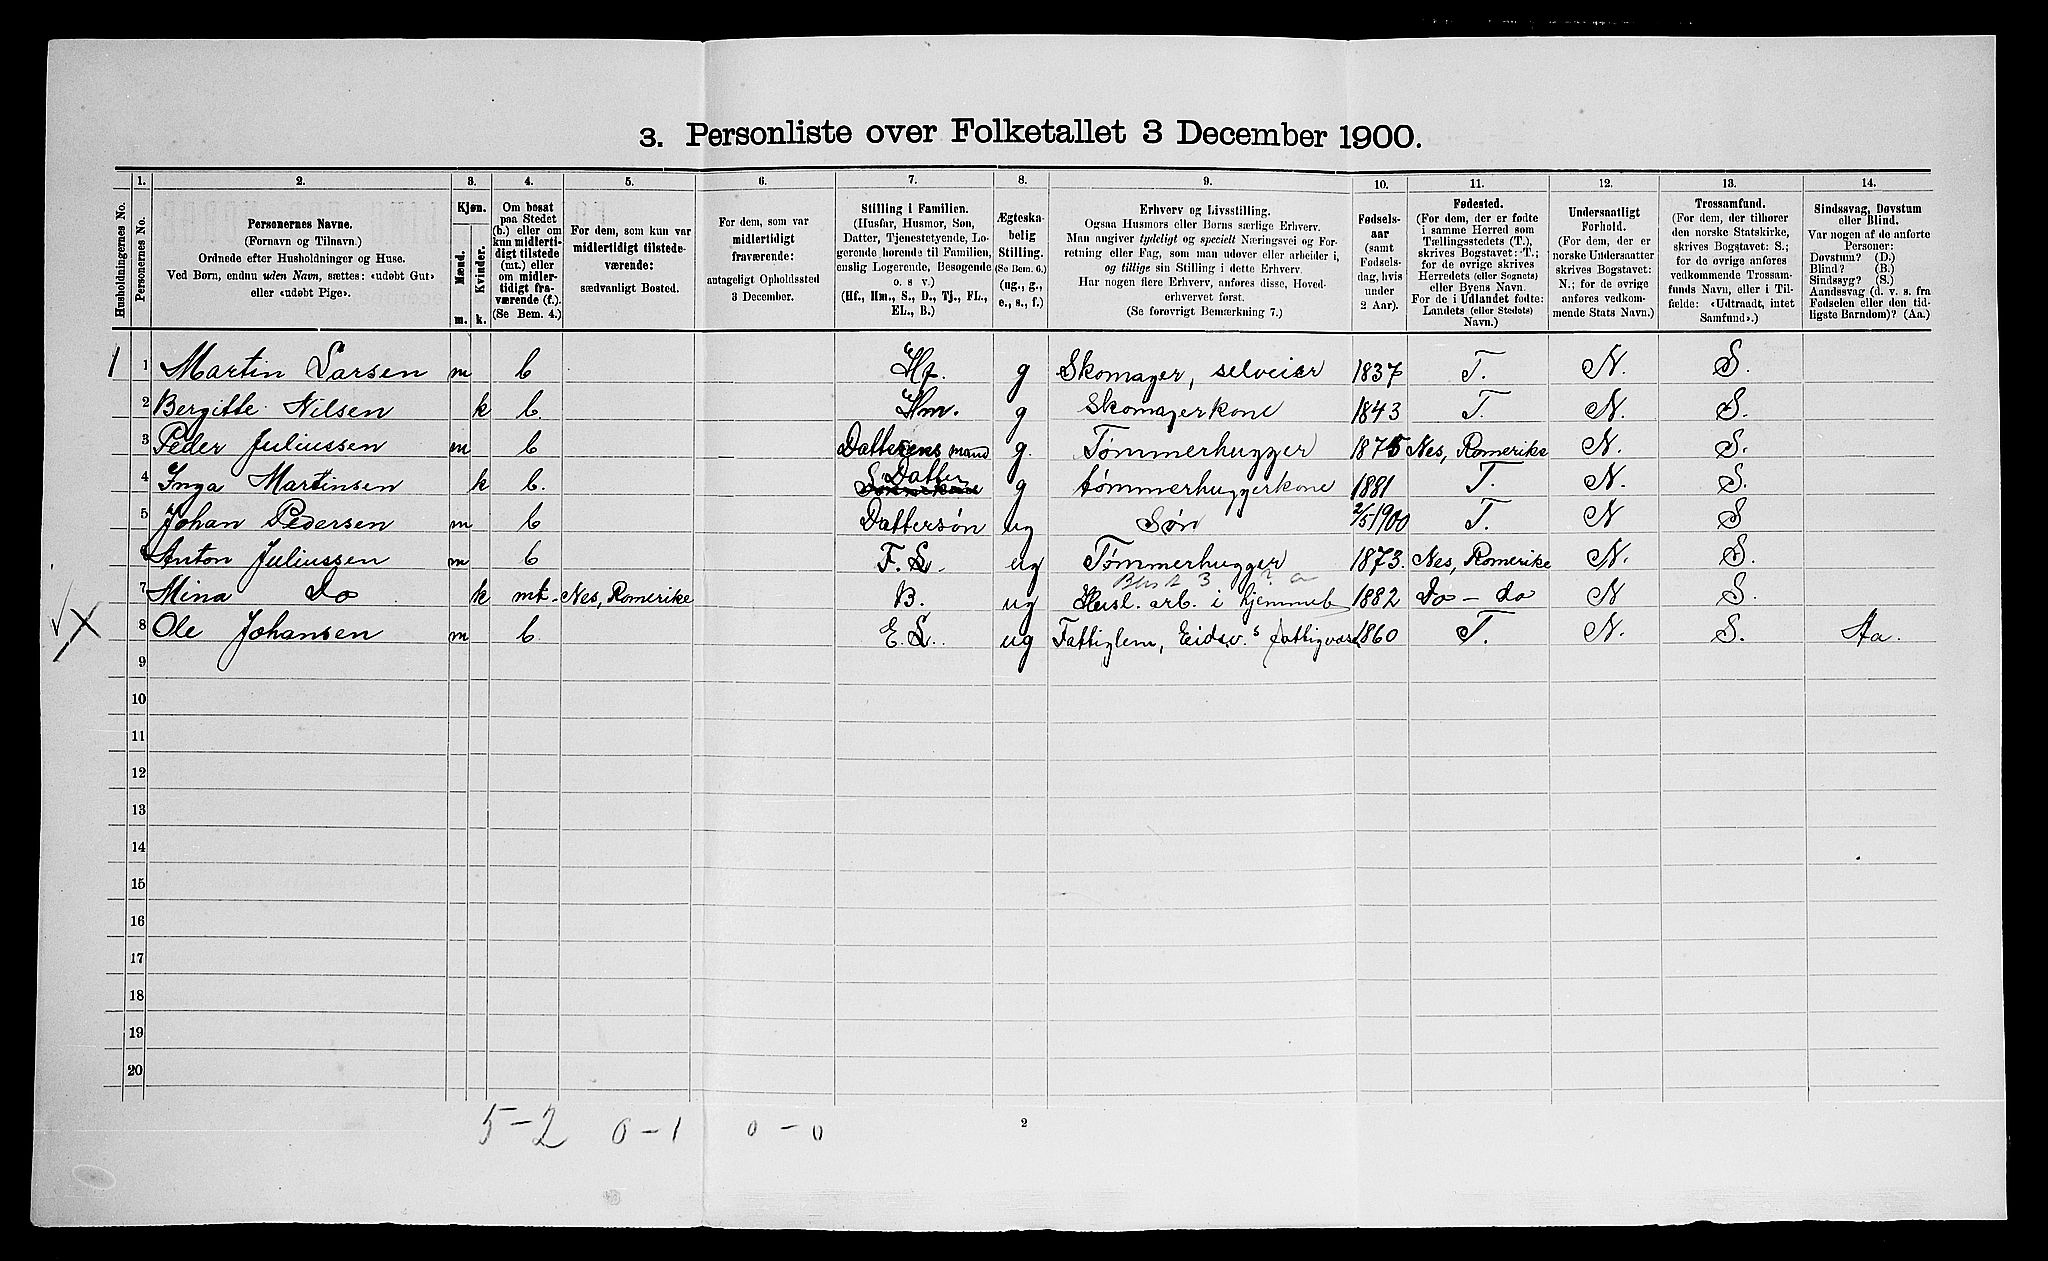 3. Personliste over Folketallet 3 December 1900.
1. 2. 3. 4. 5. 6. 7. 8. 9. 10. 11. 12. 13. 14.
Husholdningernes No.
Personernes No.
Personernes Navne.
(Fornavn og Tilnavn.)
Ordnede efter Husholdninger og Huse.
Ved Børn, endnu uden Navn, sættes: «udøbt Gut»
eller «udøbt Pige».
Kjøn.
Mænd.
Kvinder.
m. k.
Om bosat
paa Stedet
(b.) eller om
kun midlerti-
digt tilstede
(mt.) eller
om midler-
tidigt fra-
værende (f.).
(Se Bem. 4.)
For dem, som kun var
midlertidigt tilstede-
værende:
sædvanligt Bosted.
For dem, som var
midlertidigt
fraværende:
antageligt Opholdssted
3 December.
Stilling i Familien.
(Husfar, Husmor, Søn,
Datter, Tjenestetyende, Lo-
gerende hørende til Familien,
enslig Logerende, Besøgende
o. s v.)
(Hf., Hm., S., D., Tj., FL.,
EL., B.)
Ægteska-
belig
Stilling.
(Se Bem. 6.)
(ug., g.,
e., s., f.)
Erhverv og Livsstilling.
Ogsaa Husmors eller Børns særlige Erhverv.
Man angiver tydeligt og specielt Næringsvei og For-
retning eller Fag, som man udøver eller arbeider i,
og tillige sin Stilling i dette Erhverv.
Har nogen flere Erhverv, anføres disse, Hoved-
erhvervet først.
(Se forøvrigt Bemærkning 7.)
Fødsels-
aar
(samt
Fødsels-
dag, hvis
under
2 Aar).
Fødested.
(For dem, der er fødte
i samme Herred som
Tællingsstedets (T.),
skrives Bogstavet: T.;
for de øvrige skrives
Herredets (eller Sognets)
eller Byens Navn.
For de i Udlandet fødte:
Landets (eller Stedets)
Navn.)
Undersaatligt
Forhold.
(For dem, der er
norske Undersaatter
skrives Bogstavet:
N.; for de øvrige
anføres vedkom-
mende Stats Navn.)
Trossamfund.
(For dem, der tilhører
den norske Statskirke,
skrives Bogstavet: S.;
for de øvrige anføres
vedkommende Trossam-
funds Navn, eller i Til-
fælde: «Udtraadt, intet
Samfund».)
Sindssvag, Døvstum
eller Blind.
Var nogen af de anførte
Personer:
Døvstum? (D.)
Blind? (B.)
Sindssyg? (S.)
Aandssvag (d. v. s. fra
Fødselen eller den tid-
ligste Barndom)? (Aa.)
1 1 Martin Larsen m b Hf. g Skomager, selveier 1837 T. N. S.
2 Bergitte Nilsen k b. Hm. g Skomagerkone 1843 T. N. S.
3 Peder Juliussen m b Datterens mand g. Tømmerhugger 1875 Nes, Romerike N. S.
4 Inga Martinsen k b. Datter g tømmerhuggerkone 1881 T. N. S.
5 Johan Pedersen m b Dattersøn ug Søn 2/5 1900 T. N S
6 Anton Juliussen m b F.L. ug Tømmerhugger 1873. Nes, Romerike N. S.
7 Mina Do k mt. Nes, Romerike B. ug Husl. arb. i hjemmet 1882 Do - do N S.
8 Ole Johansen m b E.L. ug Fattiglem, Eidsv.s fattigvæs. 1860 T. N. S. Aa.
9
10
11
12
13
14
15
16
17
18
19
20
5-2 0-1 0-0
2